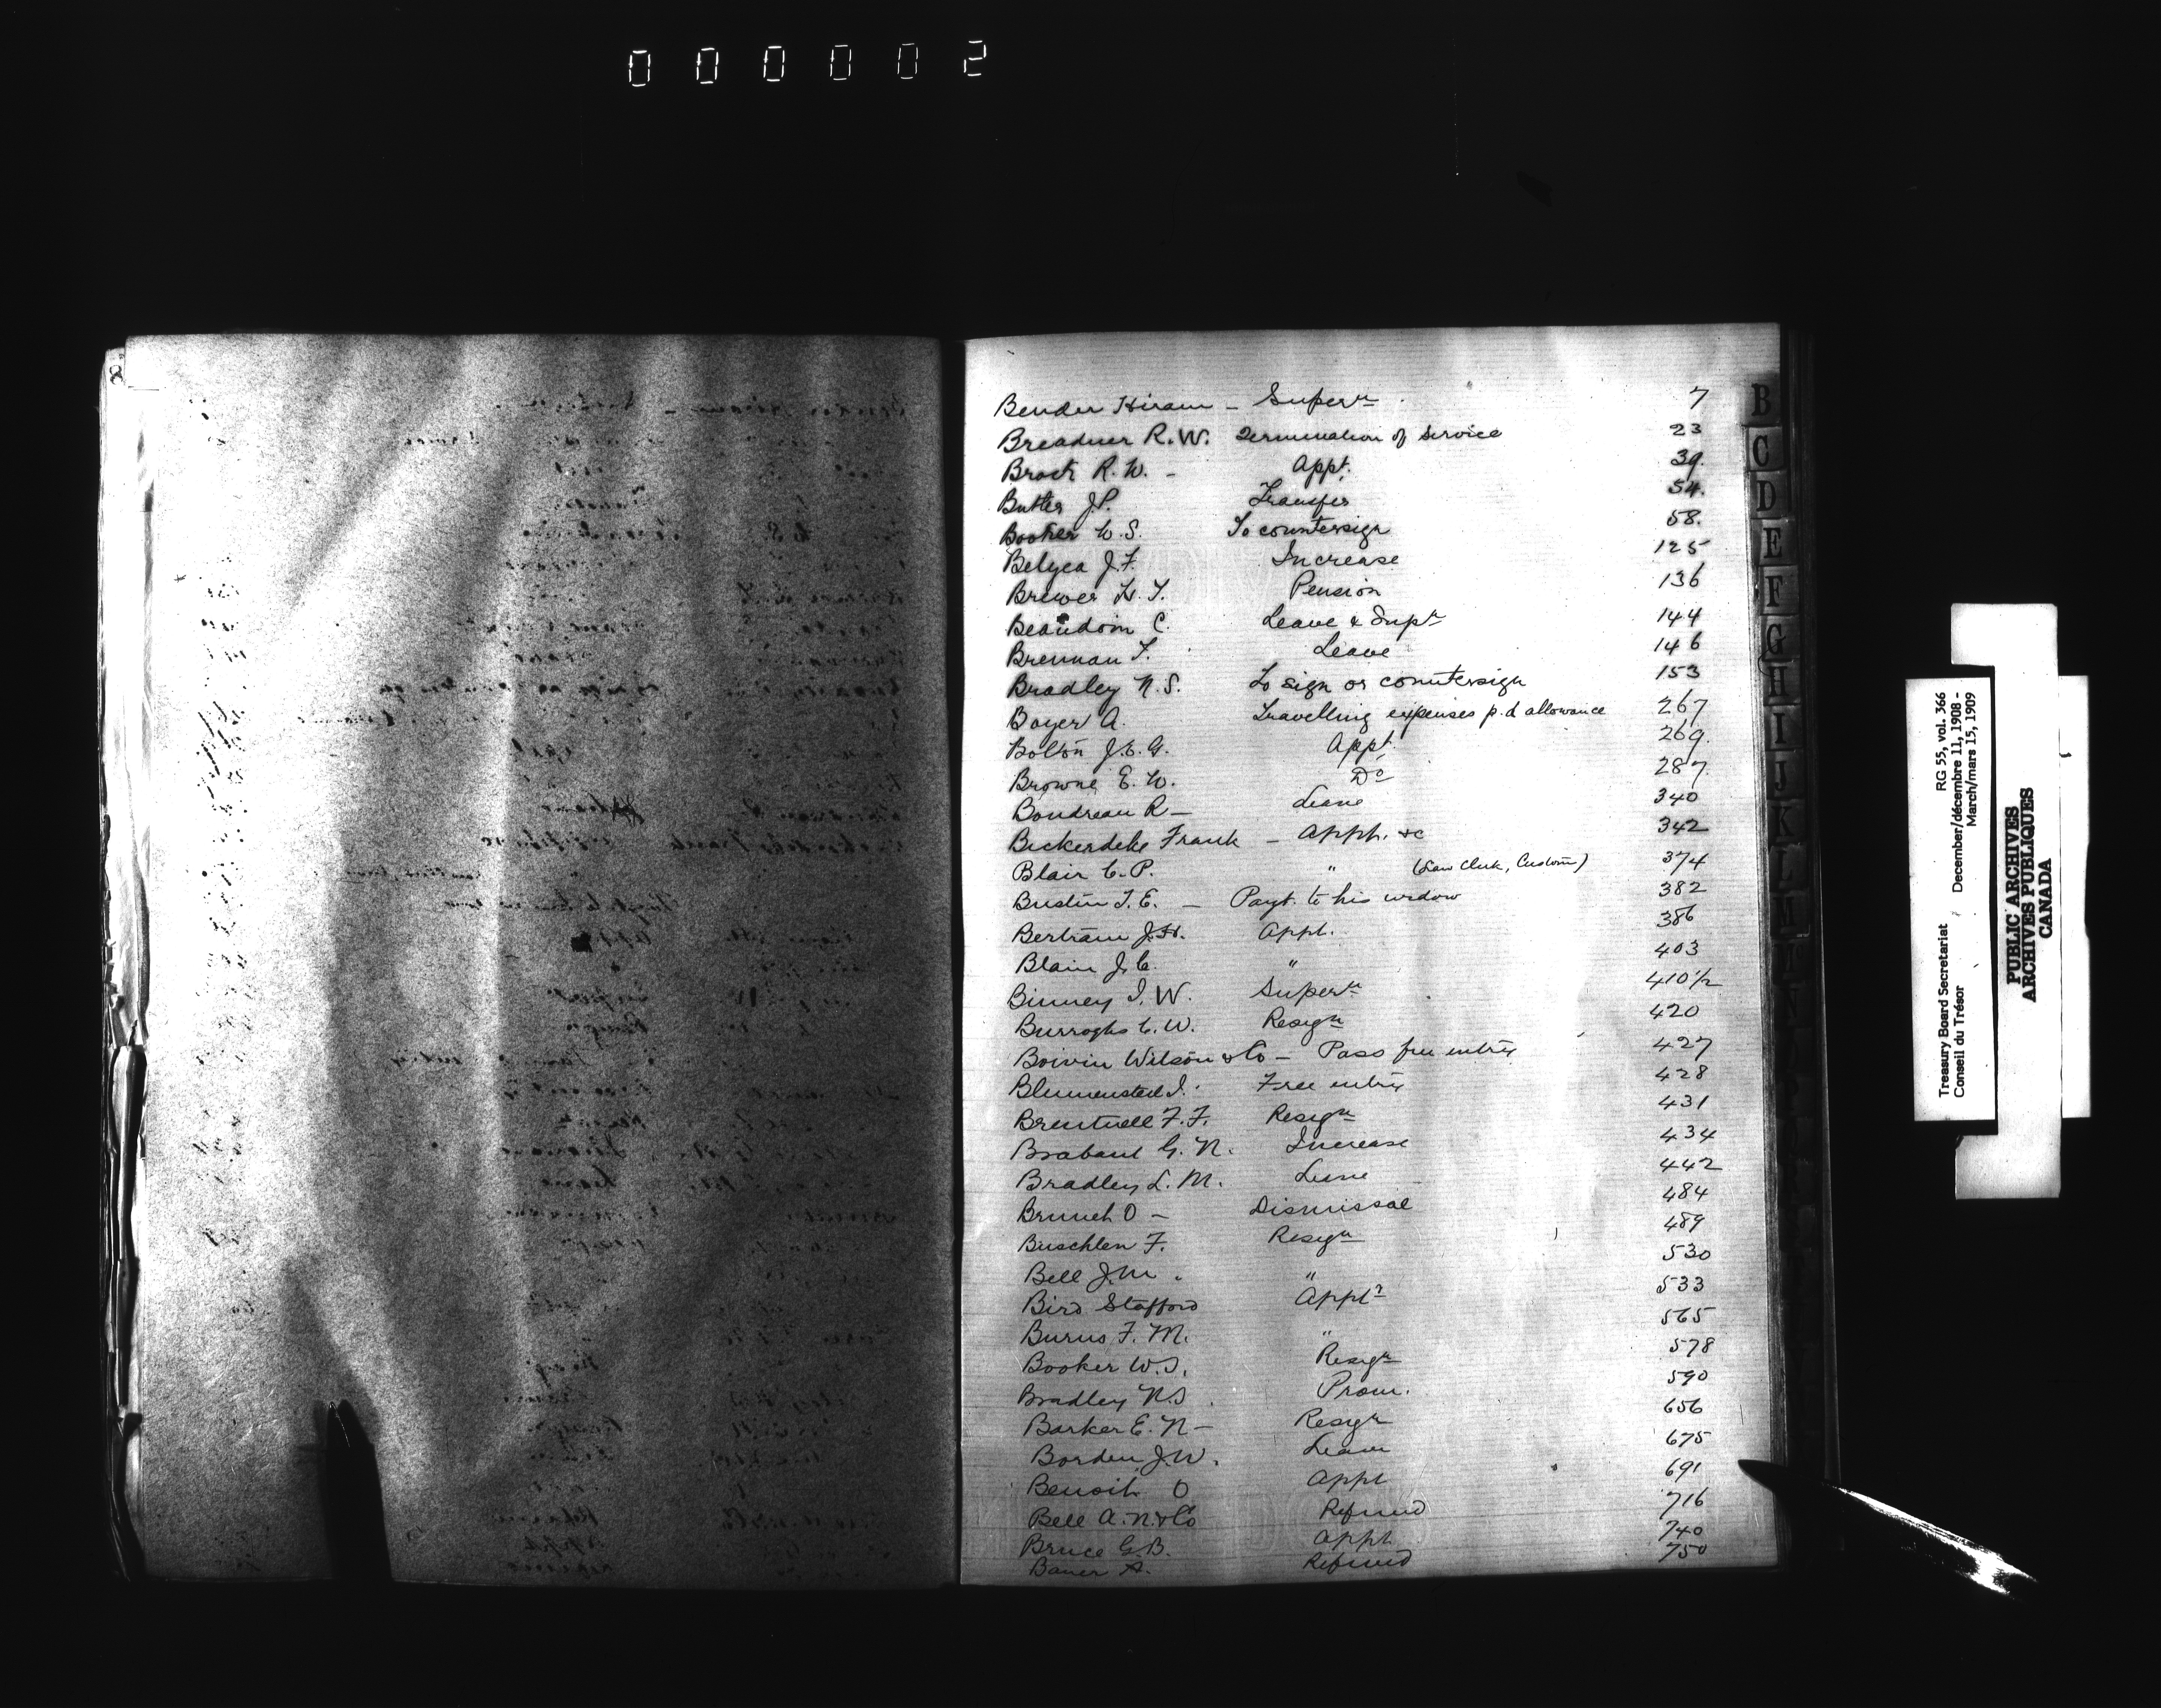 000002
8
Bender Hiram - Supern 7
Breadner R.W. Termination of Service 23
Brock R.W. - Appt. 39.
Butler J.P. Transfer 54.
Booker W.S. To countersign 58.
Belyea J.F. Increase 125
Brewer H.T. Pension 136
Beaudoin C. Leave & Supn 144
Brennan T. Leave 146
Bradley N.S. To sign or countersign 153
Boyer A. Travelling expenses p.d allowance 267
Bolton J.E.G. Appt. 269.
Browne E.W. Do 287
Boudreau R - Leave 340
Bickerdike Frank - Appt. &c 342
Blair C.P. " (Law Clerk, Customs) 374
Bustin T.E. - Payt. to his widow 382
Bertram J.H. Appt. 386
Blain J.C. " 403
Binney I.W. Supern 410 1/2
Burroghs C.W. Resign 420
Boivin Wilson & Co - Pass free entries 427
Free entries 428
Brentnell F.F. Resign 431
Brabant G.N. Increase 434
Bradley L.M. Leave 442
Brunet O - Dismissal 484
Buschlen F. Resign 489
Bell J.M. " 530
Bird Stafford Appt 533
Burns F.M. " 565
Booker W.S. Resign 578
Bradley N.S. Prom. 590
Barker E.N - Resign 656
Borden J.W. Leave 675
Benoit O Appt 691
Bell A.N. & Co Refund 716
Bruce G.B. Appt 740
Bauer A. Refund 750
B
C
D
E
F
G
H
I
J
K
L
M
Treasury Board Secretariat RG 55, vol. 366
Conseil du Trésor December/décembre 11, 1908 -
March/mars 15, 1909
PUBLIC ARCHIVES
ARCHIVES PUBLIQUES
CANADA